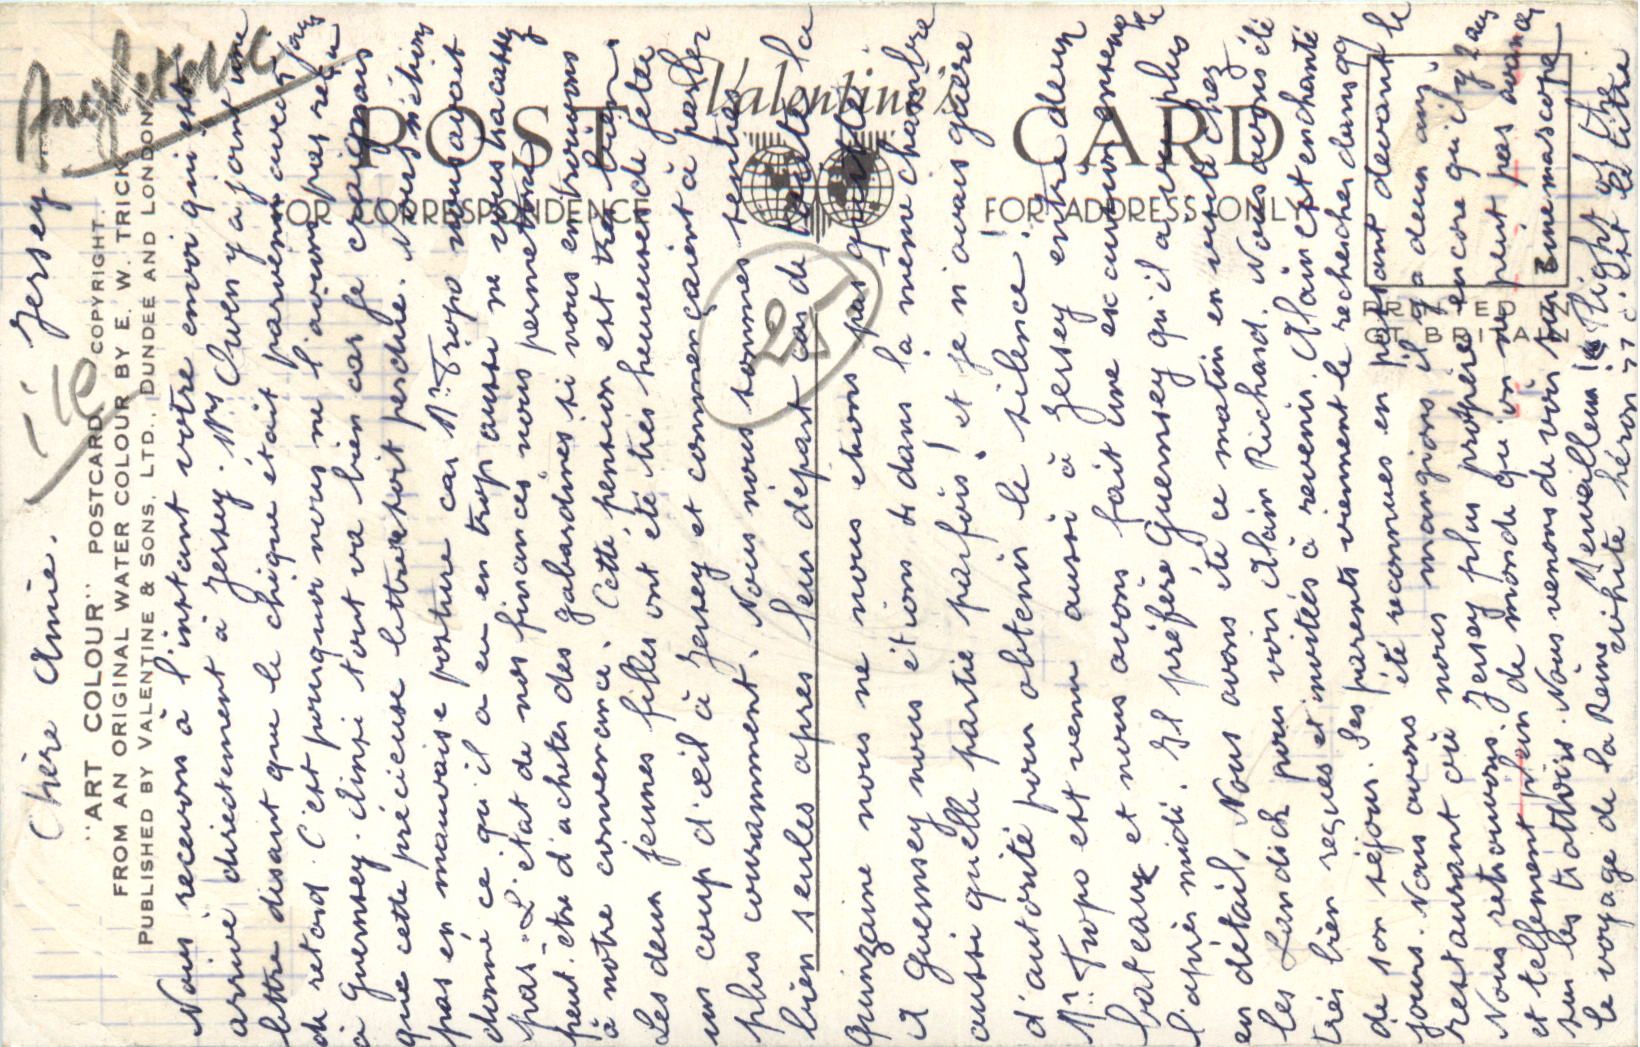 Angleterre
île Jersey
Chère Amie.
Nous recevons à l'instant votre envoi qui est
arrivé directement à Jersey. Mrs Owen y a joint une
lettre disant que le chèque était parvenu avec jours
de retard. C'est pourquoi nous ne l'avions pas reçu
à Guernsey. Ainsi tout va bien car je craignais
que cette précieuse lettre soit perdue. Nous n'étions
pas en mauvaise posture car Mr Tropo nous avait
donné ce qu'il a eu en trop aussi ne vous tracassez
pas. L'état de nos finances nous permettra
peut-être d'acheter des gabardines si nous en trouvons
à notre convenance. Cette pension est très bien.
Les deux jeunes filles ont été très heureuses de jeter
un coup d'œil à Jersey et commençaient à parler
plus couramment. Nous nous sommes senties
bien seules après leur départ car de toute la
quinzaine nous ne nous étions pas quittées
à Guernsey nous étions dans la même chambre
aussi quelle partie parfois! et je n'avais guère
d'autorité pour obtenir le silence.
Mr Tropo est venu aussi à Jersey entre deux
bateaux et nous avons fait une excursion ensemble
l'après midi. Il préfère Guernsey qu'il a vu plus
en détail. Nous avons été ce matin en visite chez
les Landick pour voir Alain Richard. Nous avons été
très bien reçues et invitées à revenir. Alain est enchanté
de son séjour. Ses parents viennent le rechercher dans 9
jours. Nous avons été reconnues en passant devant le
restaurant où nous mangions il y a deux ans.
Nous retrouvons Jersey plus prospère encore qu'il y 2 ans
et tellement plein de monde qu'on ne peut pas avancer
sur les trottoirs. Nous venons de voir sur cinemascope
le voyage de la Reine. Merveilleux! "Flight of the
white héron" c'est le titre
25
Valentine's
POST CARD
FOR CORRESPONDENCE
FOR ADDRESS ONLY
PRINTED IN
GT BRITAIN
"ART COLOUR" POSTCARD COPYRIGHT.
FROM AN ORIGINAL WATER COLOUR BY E. W. TRICK
PUBLISHED BY VALENTINE & SONS, LTD., DUNDEE AND LONDON